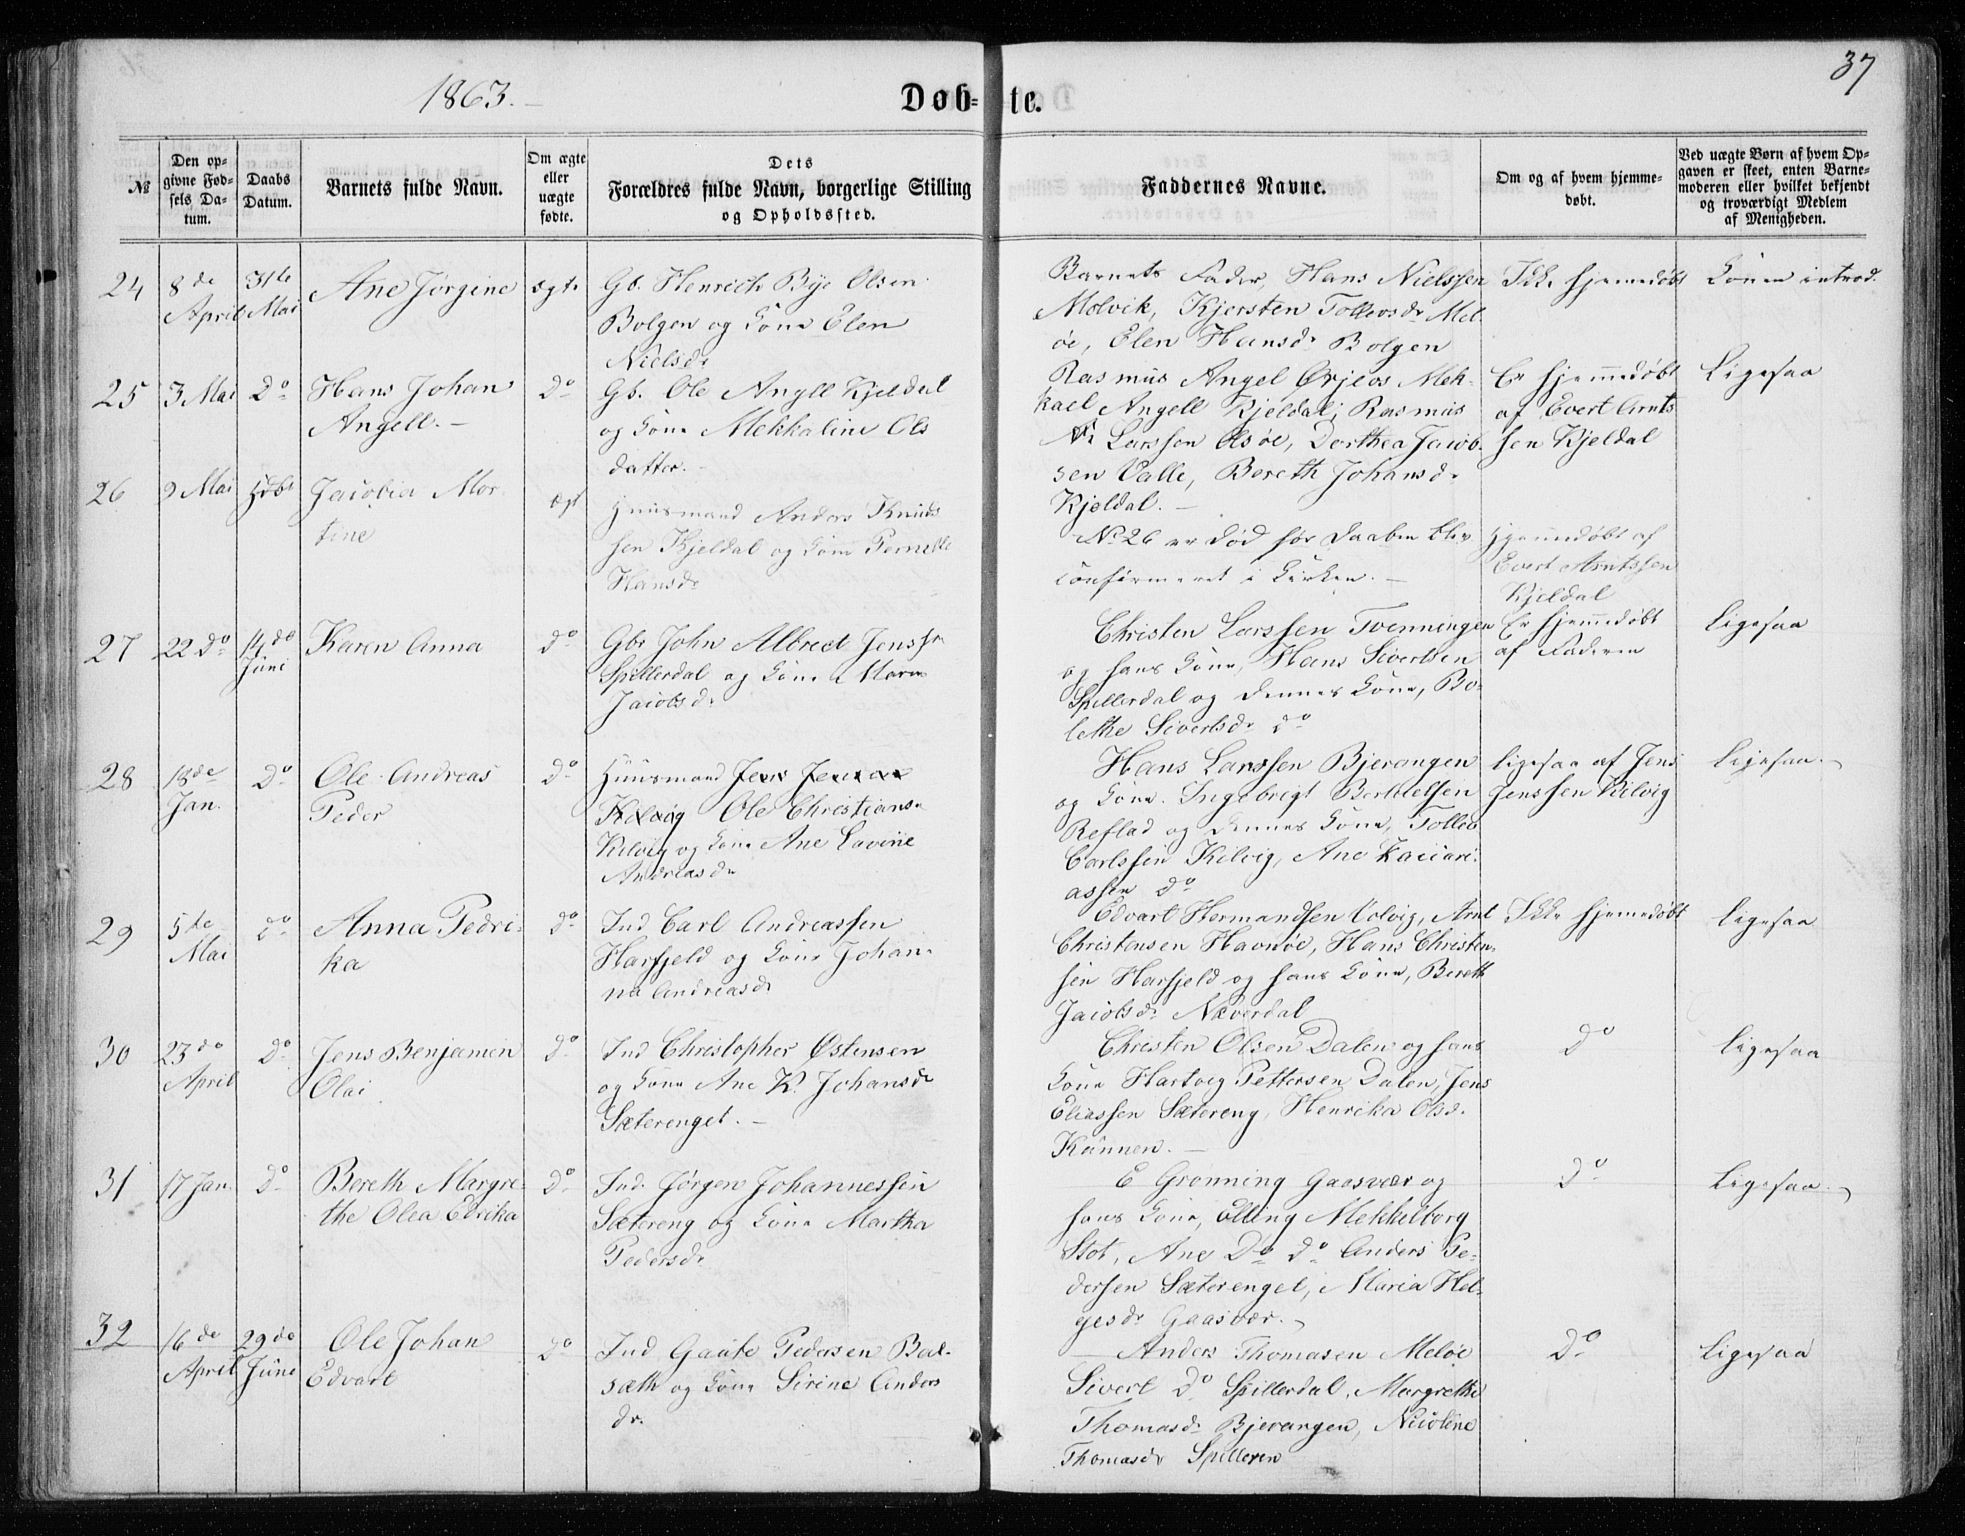 1863.
Døb-te.
37
№
Den op-
givne Fød-
sels Da-
tum.
Daabs
Datum.
Barnets fulde Navn.
Om ægte
eller
uægte
fødte.
Dets
Forældres fulde Navn, borgerlige Stilling
og Opholdssted.
Faddernes Navne.
Om og af hvem hjemme-
døbt.
Ved uægte Børn af hvem Op-
gaven er skeet, enten Barne-
moderen eller hvilket bekjendt
og troværdigt Medlem
af Menigheden.
24
8de
April
31te
Mai
Ane Jørgine
ægte
Gb. Henrich Bye Olsen
Bolgen og Kone Elen
Nielsdr
Barnets Fader, Hans Nielssen
Molvik, Kjersten Tollevsdr Mel-
øe, Elen Hansdr Bolgen
Ikke hjemmedøbt
Konen introd.
25
3 Mai
Do
Hans Johan
Angell. -
Do
Gb. Ole Angell Kjeldal
og Kone Mekkaline Ols
datter. -
Rasmus Angel Ørjeos Mek-
kael Angell Kjeldal, Rasmus
Larssen Olsøe, Dorthea Jacob-
sen Valle, Bereth Johansdr
Kjeldal. -
Er hjemmedøbt
af Evert Arnts
sen Kjeldal
Ligesaa
26
9 Mai
Hdbt
Jacobia Mor
tine
ægt
Huusmand Anders Knuds
sen Kjeldal og Kone Pernille
Hansdr
No 26 er død før Daaben blev
confirmeret i Kirken. -
Hjemmedøbt af
Evert Arntssen
Kjeldal
27
22 do
14de
Juni
Karen Anna
do
Gbr John Albrect Jenss
Spillerdal og Kone Maren
Jacobsdr
Christen Larssen Tvenningen
og hans Kone, Hans Sivertsen
Spillerdal og dennes Kone, Bo-
lethe Sivertsdr do
Er hjemmedøbt
af Faderen
Ligesaa
28
18de
Jan.
Do
Ole Andreas
Peder
Do
Huusmand Jens Jenssen
Kilvig Ole Christians
Kilvig og Kone Ane Lavine
Andreasdr
Hans Larssen Bjerangen
og Kone. Ingebrigt Berthelsen
Reflad og dennes Kone, Tollev
Carlssen Kilvig, Ane Zacari-
assen do
Ligesaa af Jens
Jenssen Kilvig
Ligesaa.
29
5te
Mai
do
Anna Pedri-
ka
do
Ind Carl Andreassen
Harfjeld og Kone Johan-
na Andreasdr
Edvart Hermandsen Valvig, Arnt
Christensen Havnøe, Hans Christen-
sen Harfjeld og hans Kone, Bereth
Jacobsdr Næverdal
Ikke hjemmedøbt
Ligesaa
30
23de
April
do
Jens Benjamin
Olai
do
Ind Christopher Østensen
og Kone Ane K. Johansdr
Sæterenget. -
Christen Olsen Dalen og hans
Kone Hartvig Pettersen Dalen, Jens
Eliassen Sætereng, Henrika Olsd.
Kunnen. -
do
Ligesaa
31
17 Jan
do
Bereth Margre-
the Olea Edrika
do
Ind. Jørgen Johannessen
Sætereng og Kone Martha
Pedersdr
E Grønning Gaasvær og
hans Kone, Elling Mekkelborg
Stot, Ane Do do Anders Pe-
dersen Sæterenget, Maria Hel-
gesdr Gaasvær.
do
Ligesaa.
32
16de
April
29de
Juni
Ole Johan
Edvart
do
Ind Gaute Pedersen Bal-
sæth og Kone Sirine Anders
dr.
Anders Thomasen Meløe
Sivert do Spillerdal, Margrethe
Thomasdr Bjerangen, Nicoline
Thomasdr Spilleren
Do
Ligesaa